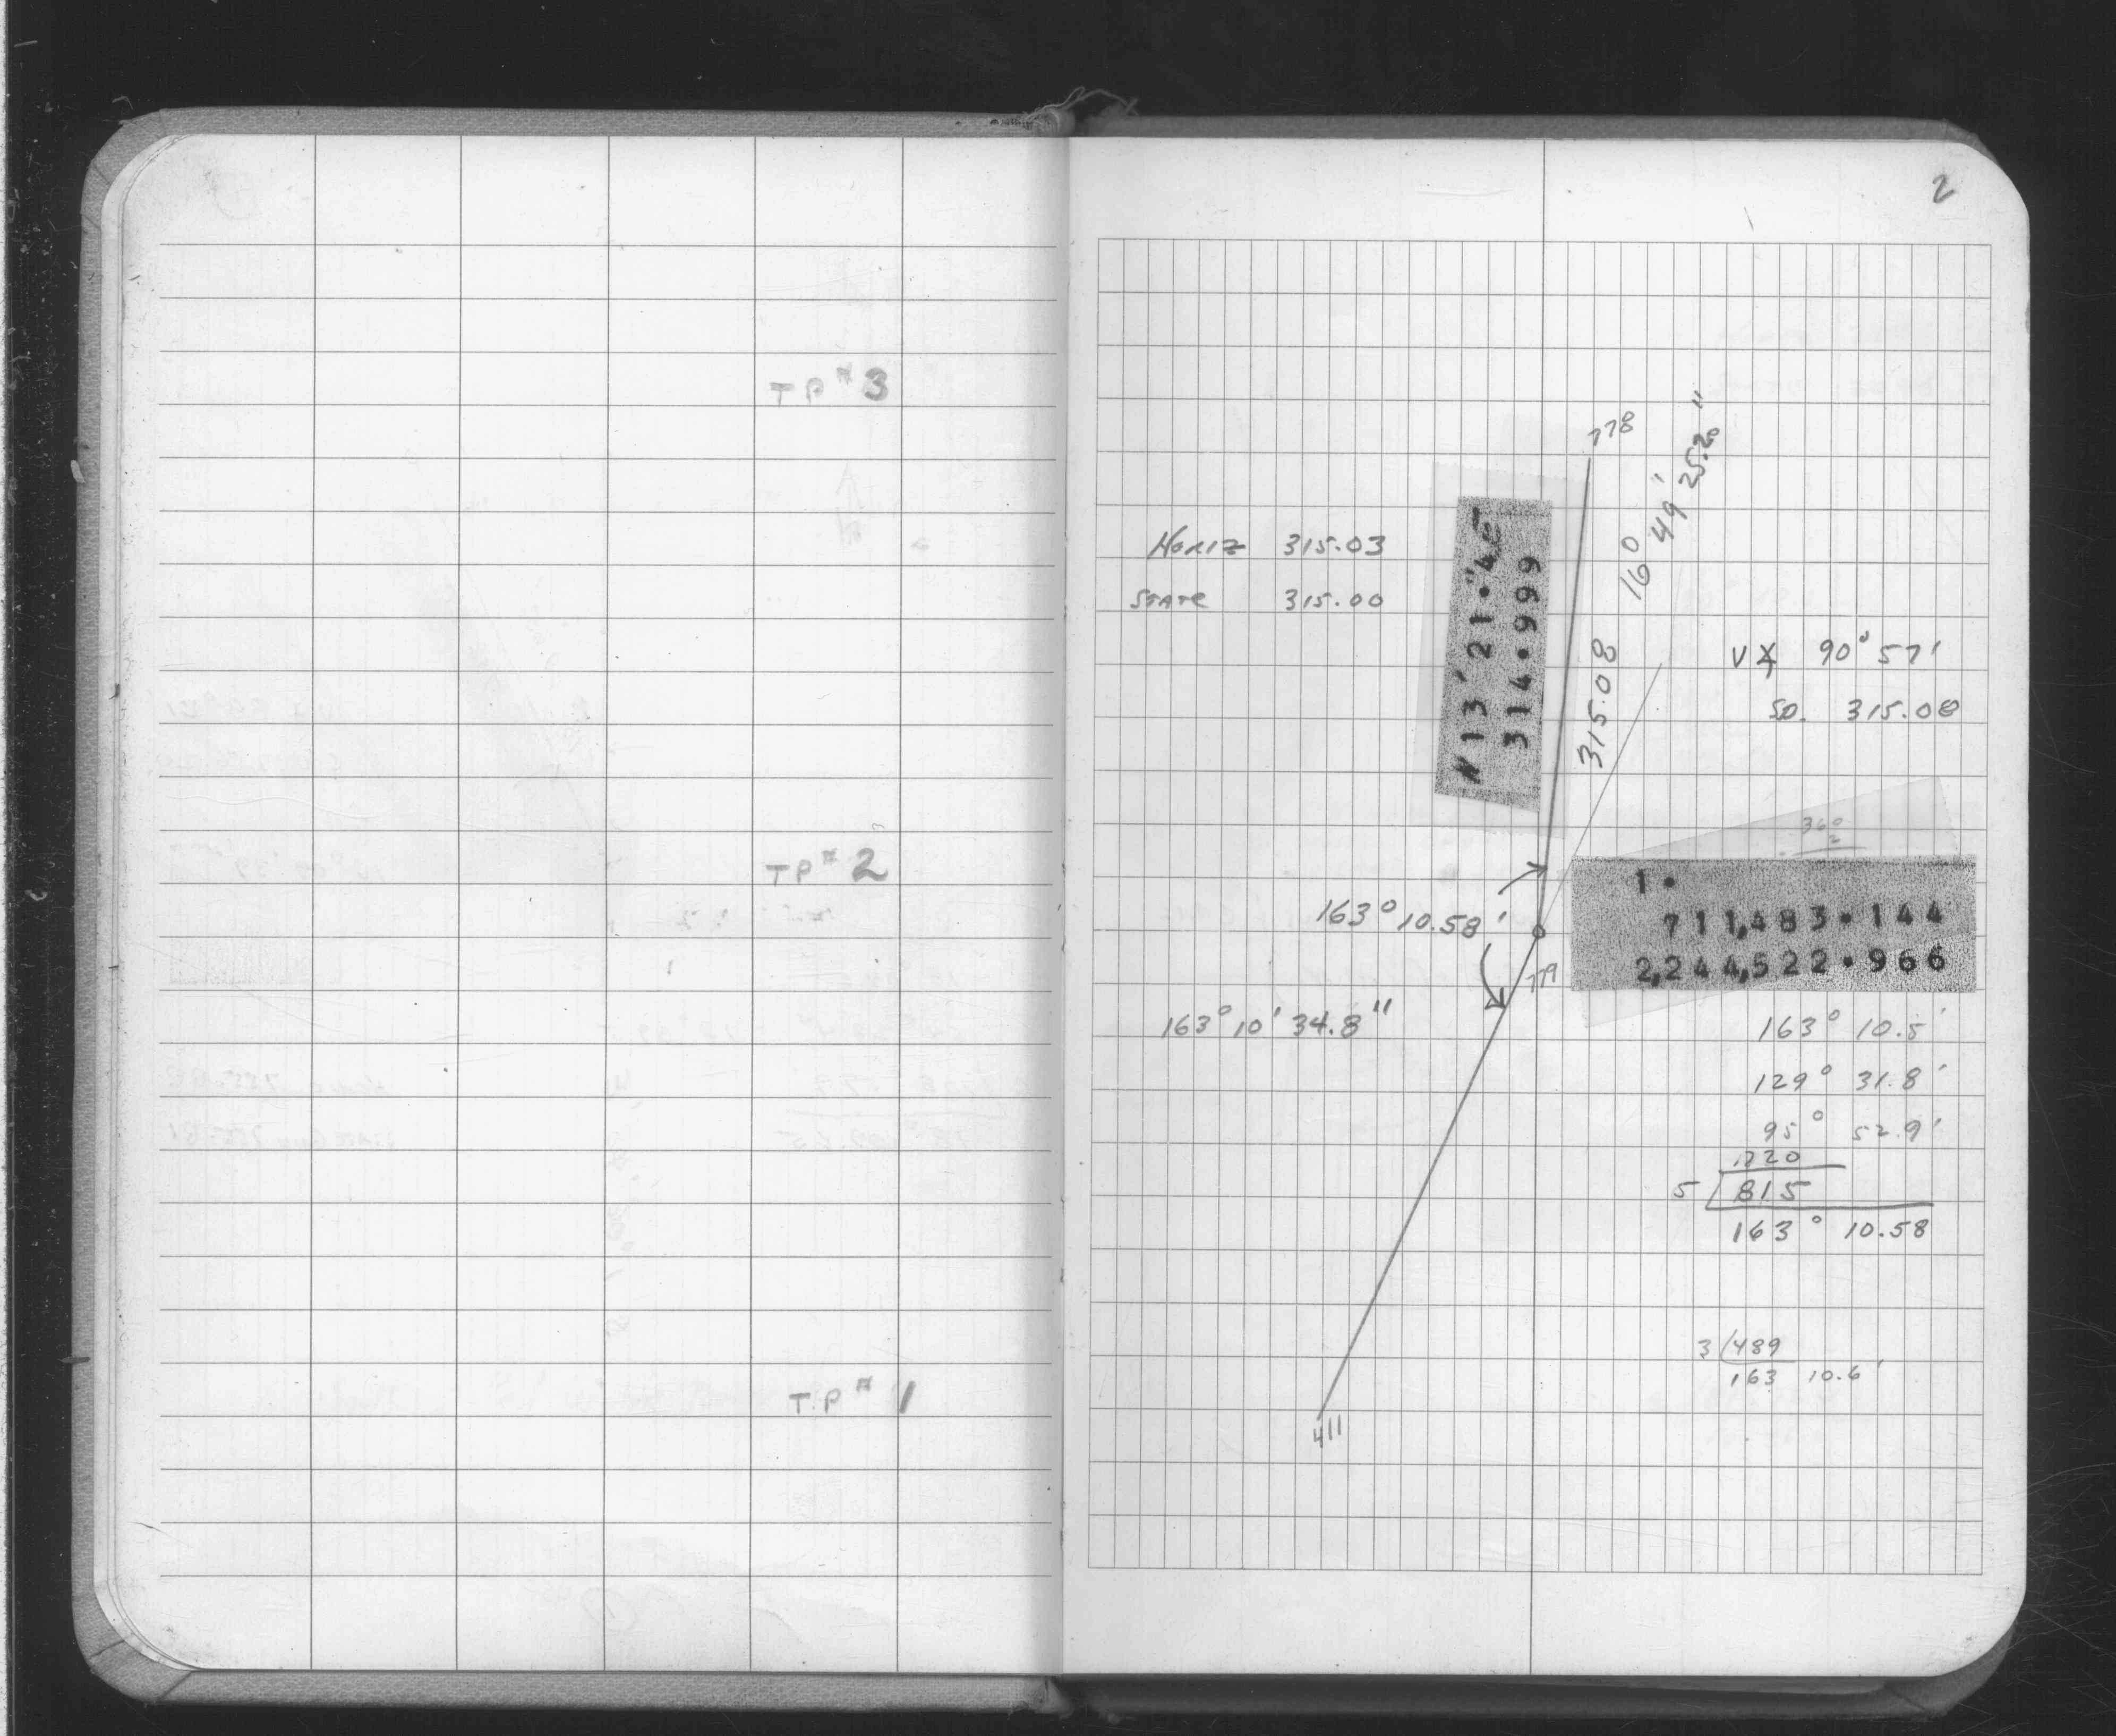 TP # 3
TP # 2
T.P # 1
2
778
16° 49' 25.2"
Horiz 315.03
State 315.00
N 13 ' 21 . " 4 E
314.999
315.08
V∡ 90° 57'
SD. 315.08
360
2
1.
711,483.144
2,244,522.966
163° 10.58'
779
163° 10' 34.8"
163° 10.5'
129° 31.8'
95° 52.9'
720
5 815
163° 10.58
3 489
163 10.6'
411